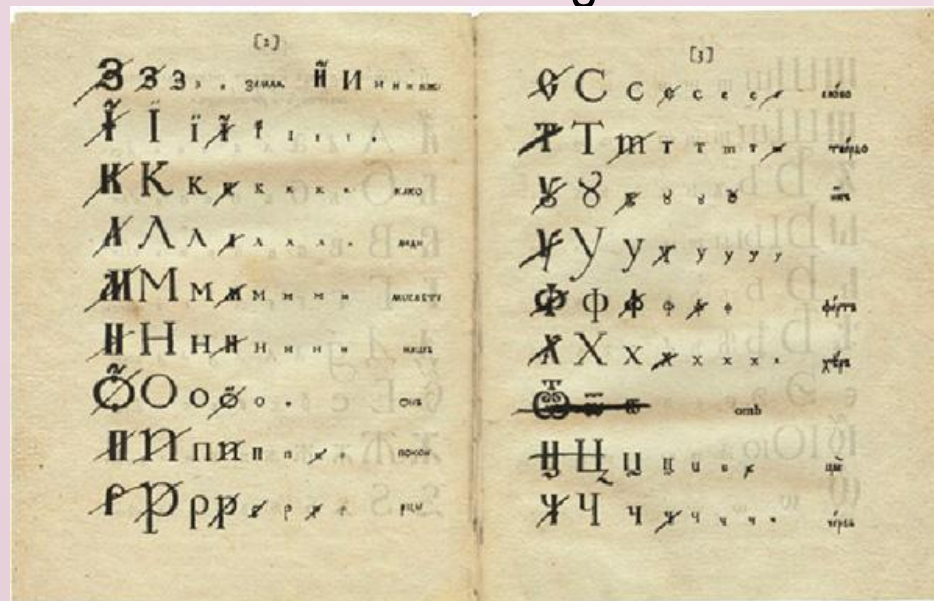 [2]
З З З з з . ЗЕМЛЯ. Й И и и и ИЖЕ
Ї Ї ї ї ї ї ї ї .
К К К К К К К К КАКО
Л Л Л Л Л Л Л Л ЛЮДИ
М М М М М М М М МЫСЛѢТЕ
Н Н Н Н Н Н Н Н НАШЪ
О О О О О . ОНЪ
П П П П П П П П ПОКОЙ
Р Р Р Р Р Р Р Р РЦЫ
[3]
С С С С С С С С СЛОВО
Т Т т т Т Т т Т т ТВЕРДО
Ꙋ Ꙋ Ꙋ Ꙋ Ꙋ Ꙋ Ꙋ
У У у у у у у у
Ф ф ф ф ф ф ФЕРТЪ
Х Х х х х х х х ХѢРЪ
Ѿ Ѿ Ѿ отъ
Ц Ц Ц Ц Ц Ц Ц ЦЫ
Ч Ч ч ч ч ч ч ч ЧЕРВЬ